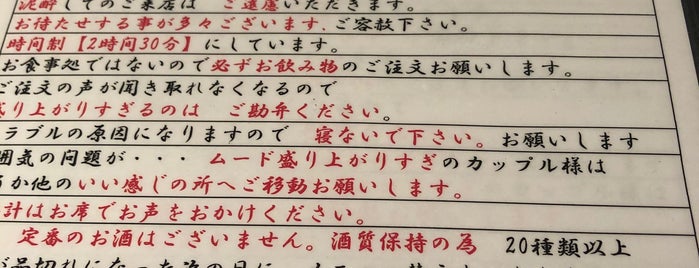 泥酔してのご来店は　ご遠慮いただきます。
お待たせする事が多々ございます、ご容赦下さい。
時間制【2時間30分】にしています。
お食事処ではないので必ずお飲み物のご注文お願いします。
ご注文の声が聞き取れなくなるので
盛り上がりすぎるのは　ご勘弁ください。
ラブルの原因になりますので　寝ないで下さい。お願いします
囲気の問題が・・・ムード盛り上がりすぎのカップル様は
か他のいい感じの所へご移動お願いします。
計はお席でお声をおかけください。
定番のお酒はございません。酒質保持の為　20種類以上
が品切れになった次の日に